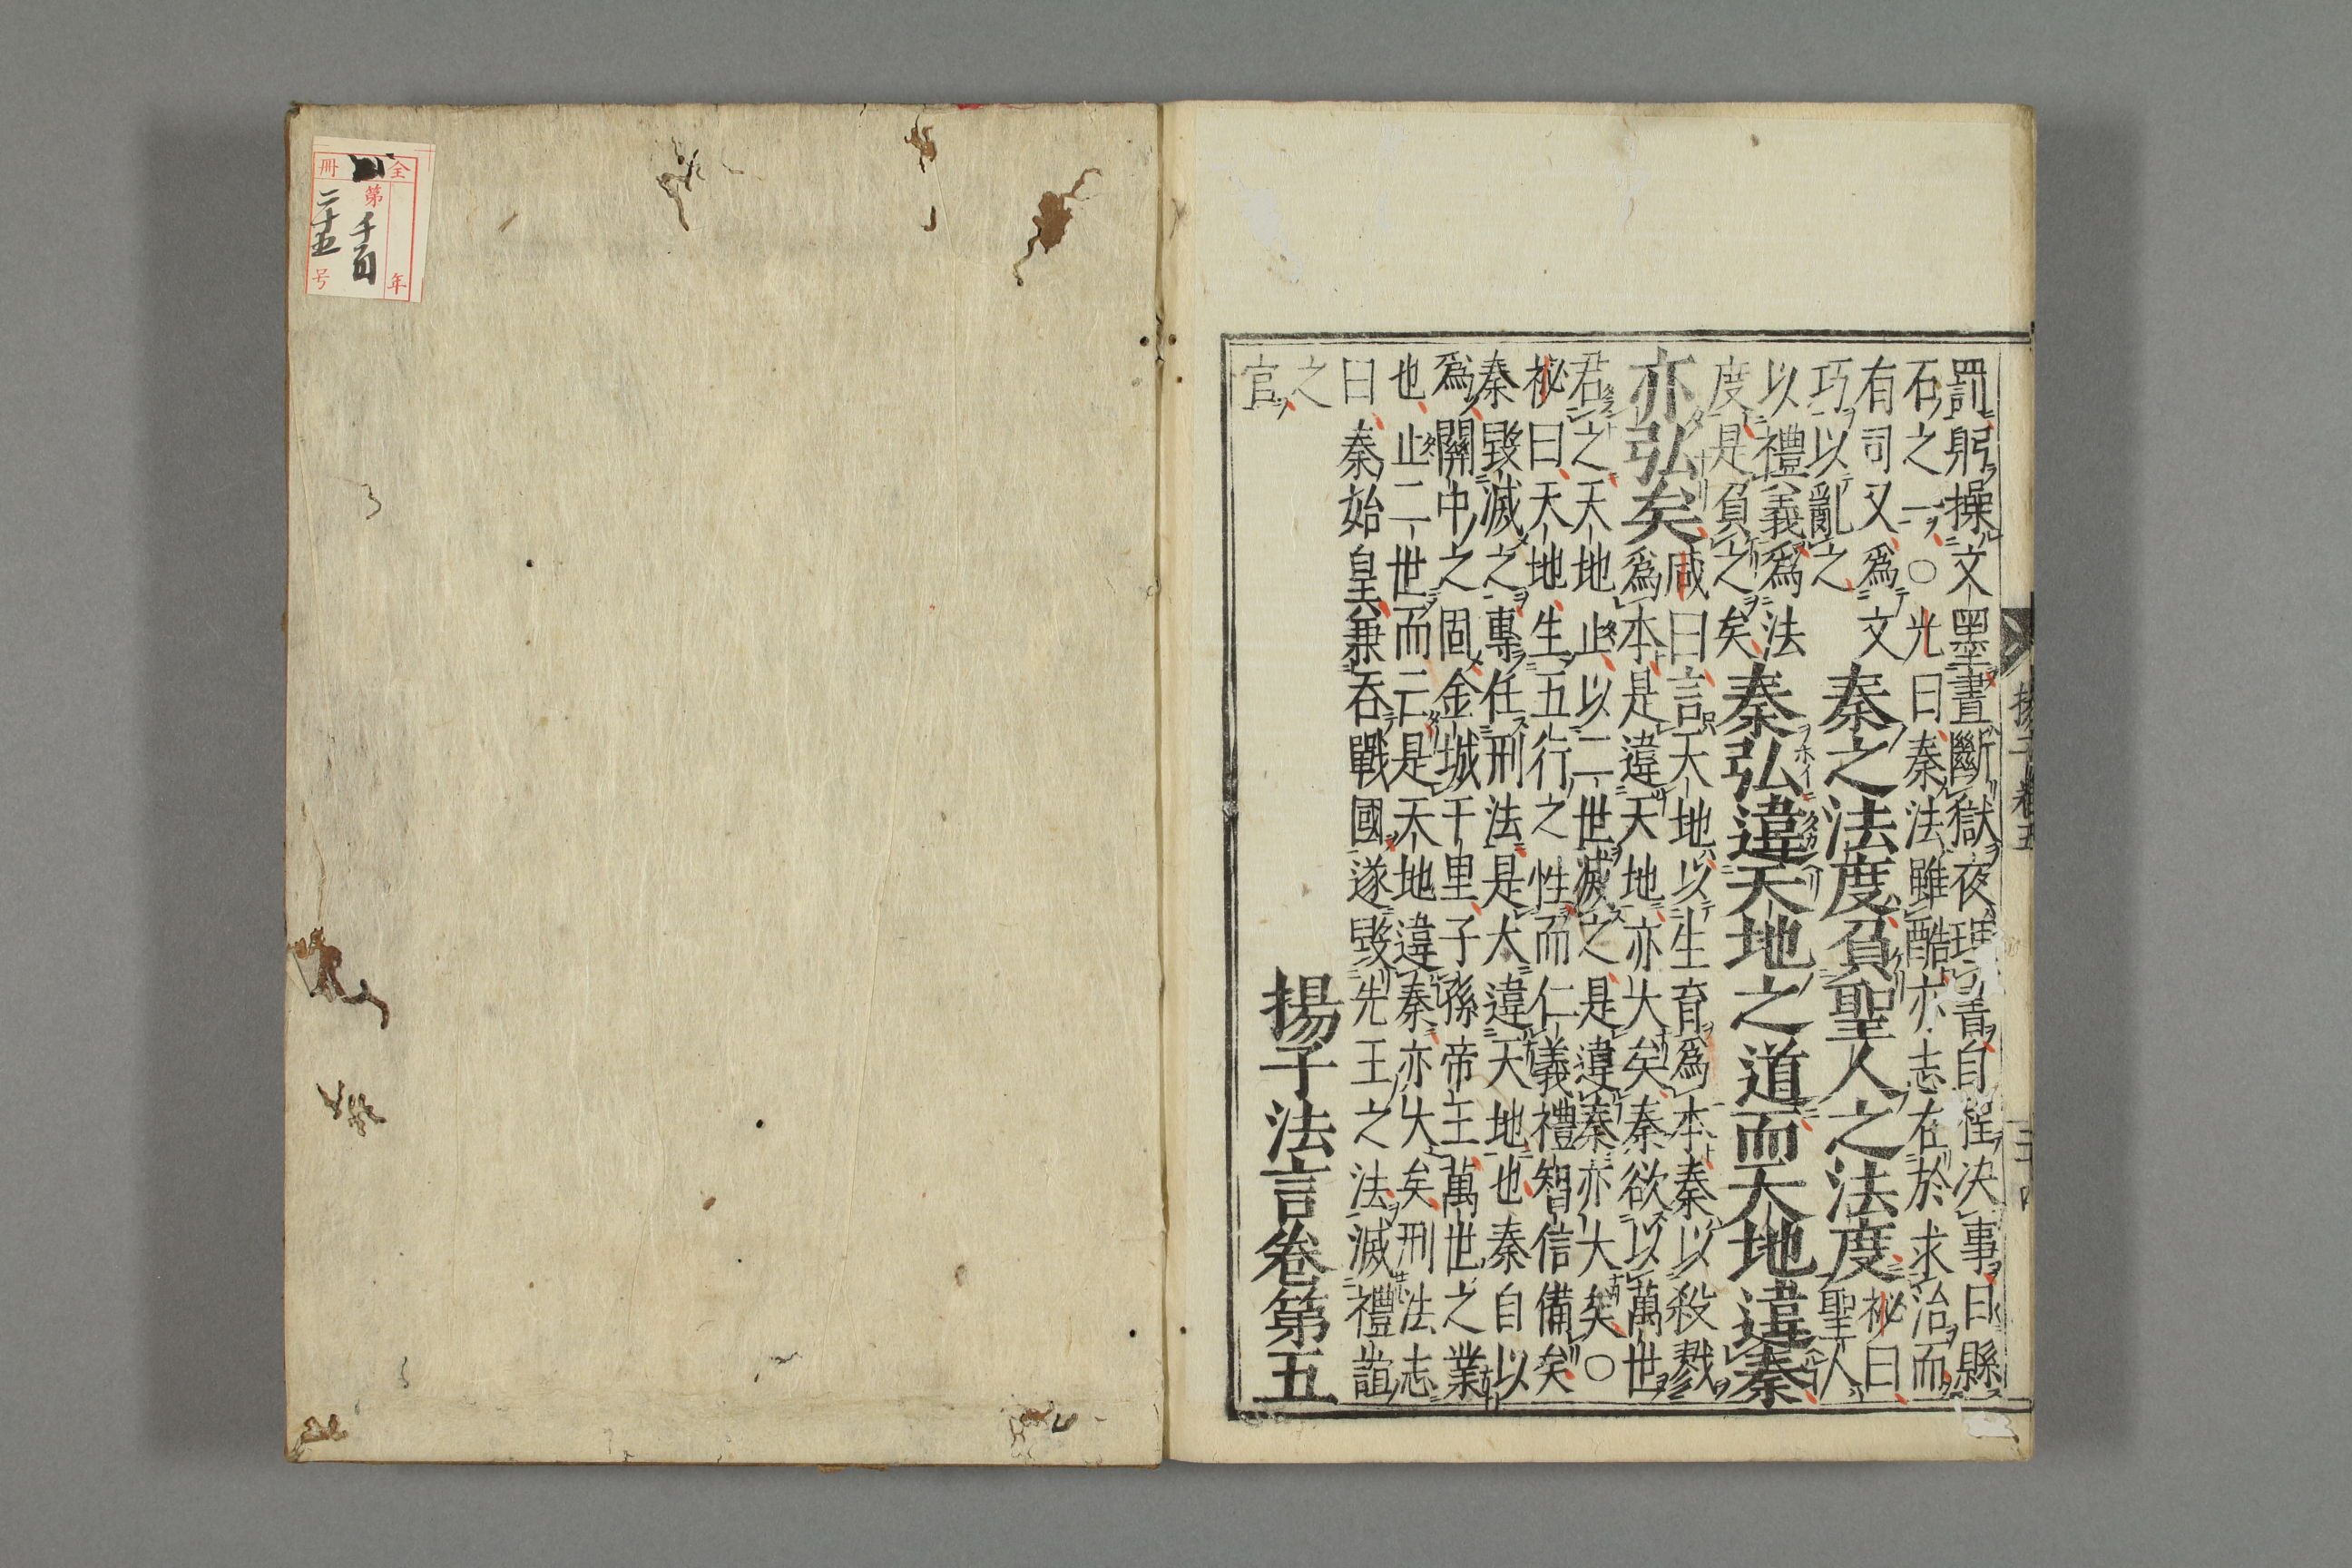 罰躬操文墨晝斷獄夜理書自程決事日縣
石之一○光曰秦法雖酷亦志在於求治而
有司又爲文
巧以亂之
秦之法度負聖人之法度
祕曰
聖人
以禮義爲法
度是負之矣
秦弘違天地之道而天地違秦
亦弘矣
咸曰言天地以生育爲本秦以殺戮
爲本是違天地亦大矣秦欲以萬世
君之天地止以二世滅之是違秦亦大矣○
祕曰天地生五行之性而仁義禮智信備矣
秦毀滅之專任刑法是大違天地也秦自以
爲關中之固金城千里子孫帝王萬世之業
也止二世而亡是天地違秦亦大矣刑法志
曰秦始皇兼吞戰國遂毀先王之法滅禮誼
之
官
揚子法言卷第五
揚子卷五
全 冊
年
第千百
二十五号